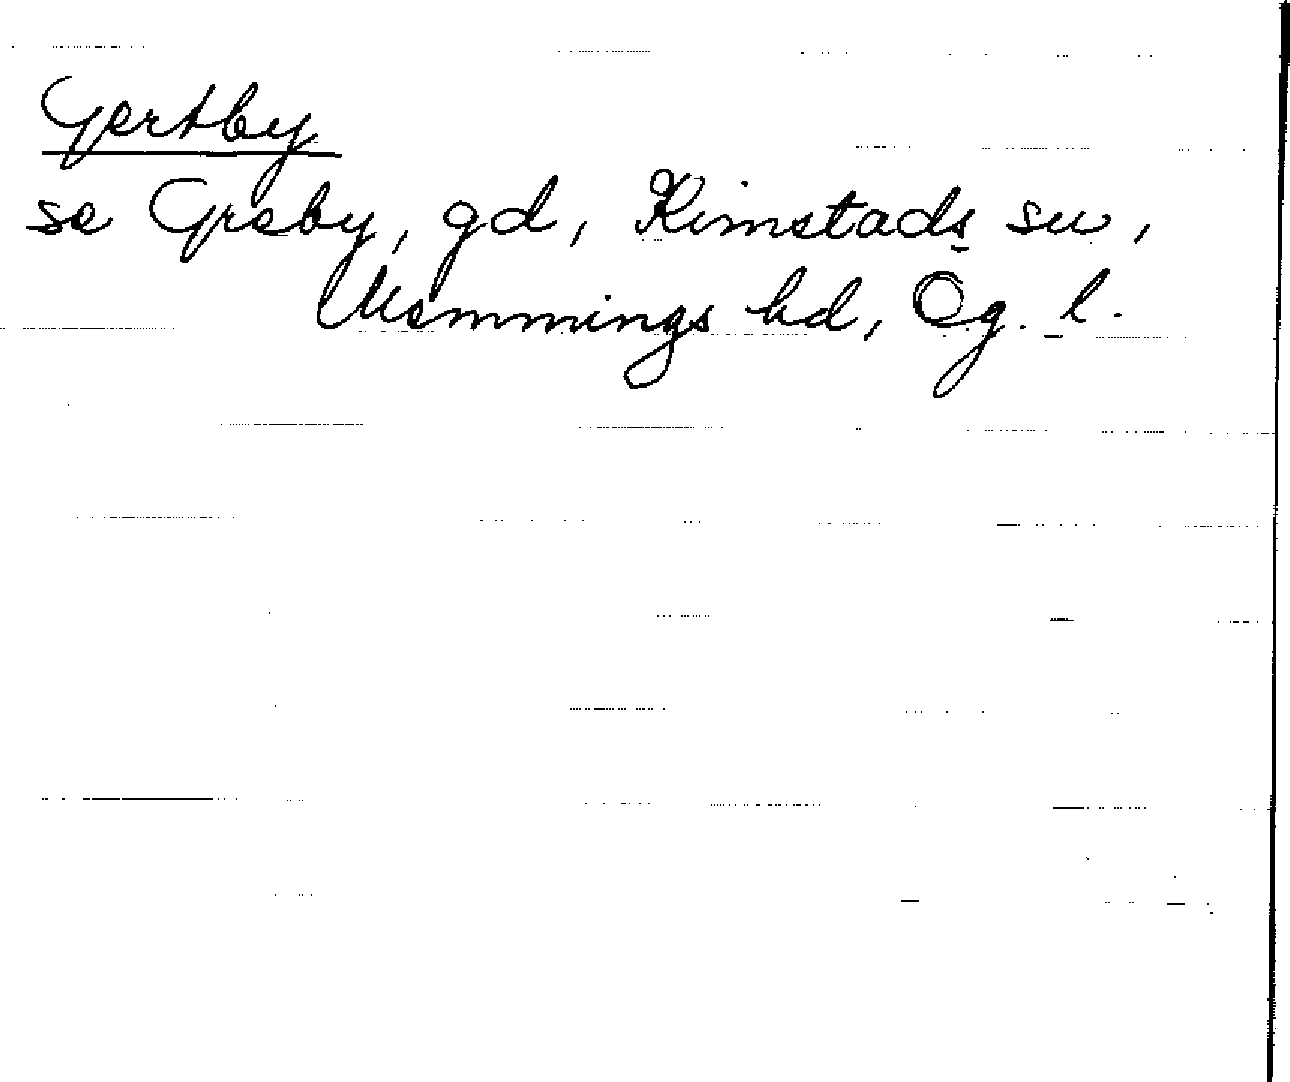 Gertby
se Greby, gd, Kimstads sn,
Memmings hd, Ög. l.